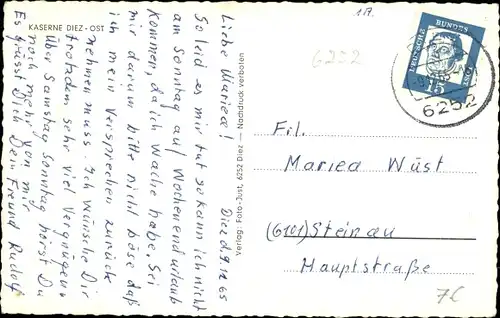 KASERNE DIEZ - OST
Diez d 9.12.65
Liebe Mariea!
So leid es mir tut so kann ich nicht
am Sonntag auf Wochenendurlaub
kommen, da ich Wache habe. Sei
mir darum bitte nicht böse daß
ich mein Versprechen zurück
nehmen muss. Ich wünsche Dir
trotzdem sehr viel Vergnügen.
Über Samstag Sonntag hörst Du
noch mehr von mir
Es grüsst Dich Dein Freund Rudolf
Verlag: Foto-Just, 6252 Diez — Nachdruck verboten
6252
DEUTSCHE BUNDESPOST
15
6252
Frl.
Mariea Wüst
(6101) Steinau
Hauptstraße
7C